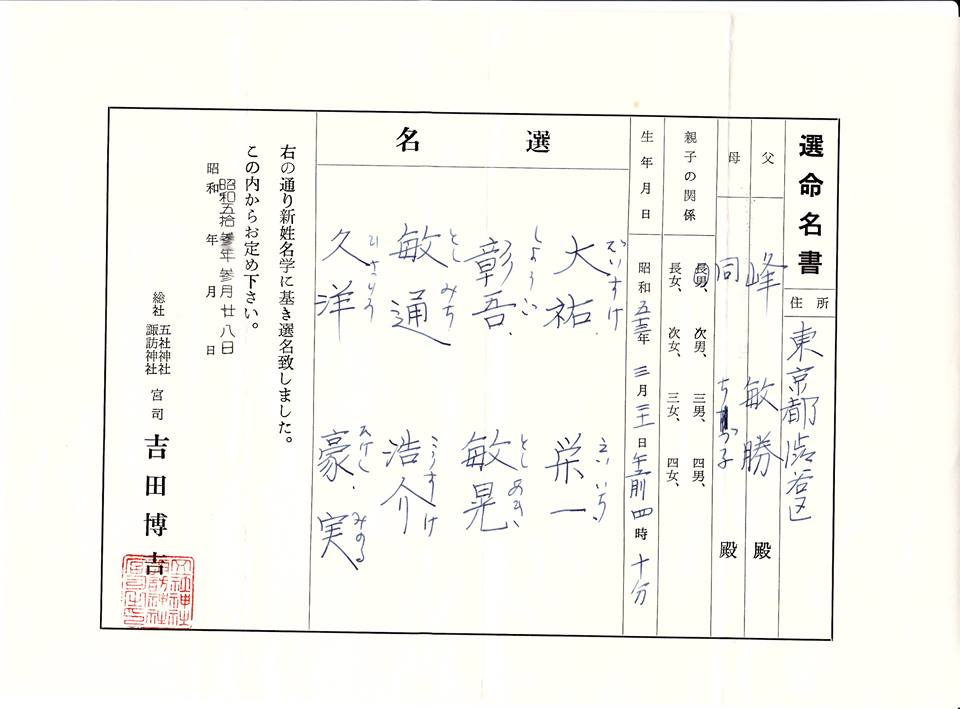 選命名書
住所 東京都渋谷区
父 峰 敏勝 殿
母 同 ちづ子 殿
親子の関係 長男、次男、三男、四男、
長女、次女、三女、四女、
生年月日 昭和五十三年三月二十二日午前四時十分
選名
だいすけ えいいち
大祐 栄一
しょうご としあき
彰吾 敏晃
としみち こうすけ
敏通 浩介
ひさひろ たけし みのる
久洋 豪 実
右の通り新姓名学に基き選名致しました。
この内からお定め下さい。
昭和五拾参年参月廿八日
昭和 年 月 日
総社 五社神社 諏訪神社 宮司 吉田博吉